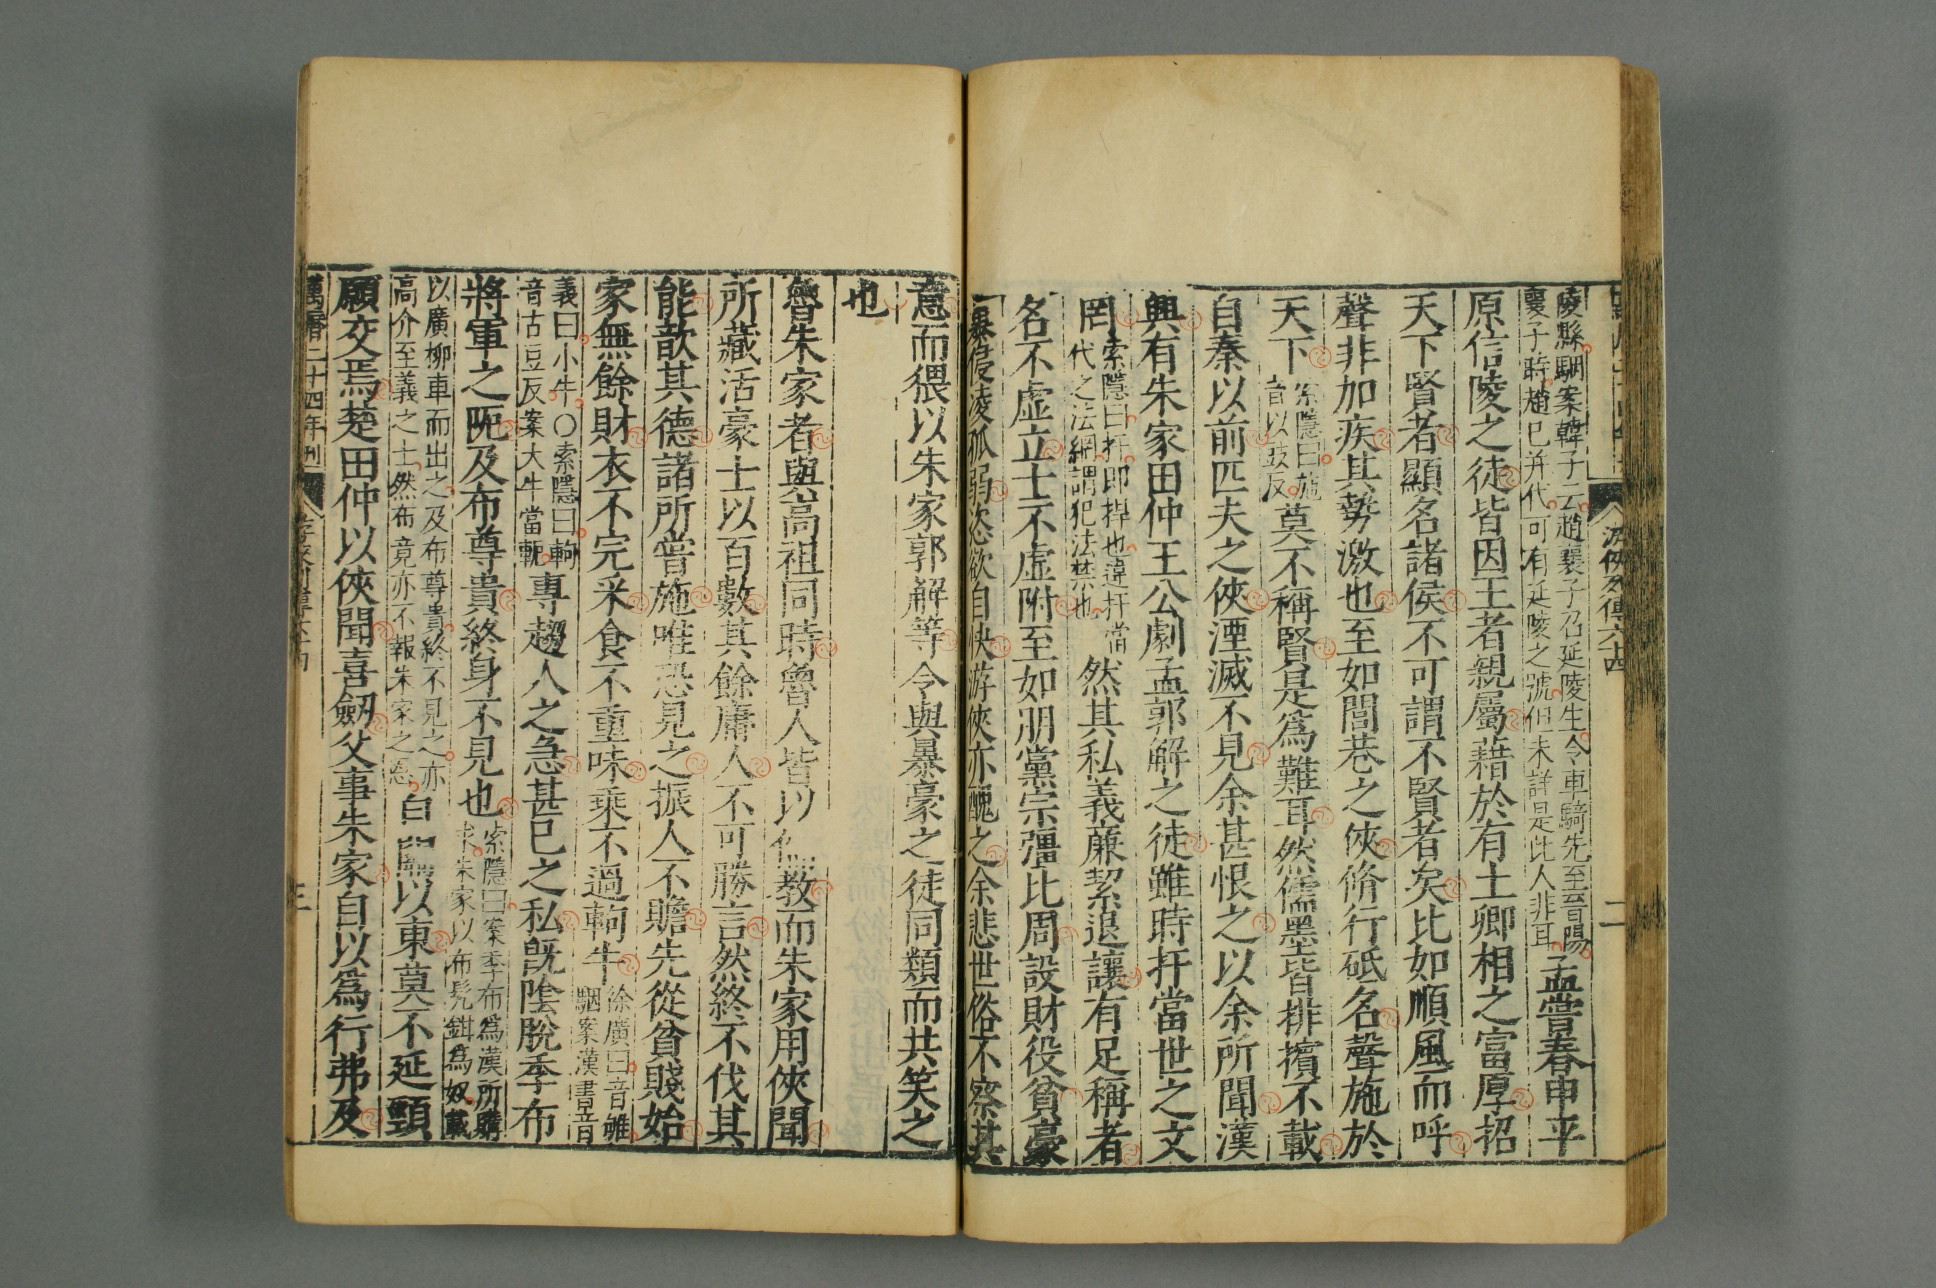 游俠列傳六十四
二
陵縣駰案韓子云趙襄子召延陵生令車騎先至晉陽
襄子時趙已并代可有延陵之號但未詳是此人非耳
孟嘗春申平
原信陵之徒皆因王者親屬藉於有土卿相之富厚招
天下賢者顯名諸侯不可謂不賢者矣比如順風而呼
聲非加疾其勢激也至如閭巷之俠脩行砥名聲施於
天下
索隱曰施
音以豉反
莫不稱賢是爲難耳然儒墨皆排擯不載
自秦以前匹夫之俠湮滅不見余甚恨之以余所聞漢
興有朱家田仲王公劇孟郭解之徒雖時扞當世之文
罔
索隱曰扞即捍也違扞當
代之法網謂犯法禁也
然其私義廉絜退讓有足稱者
名不虛立士不虛附至如朋黨宗彊比周設財役貧豪
暴侵淩孤弱恣欲自快游俠亦醜之余悲世俗不察其
意而猥以朱家郭解等令與暴豪之徒同類而共笑之
也
魯朱家者與高祖同時魯人皆以儒教而朱家用俠聞
所藏活豪士以百數其餘庸人不可勝言然終不伐其
能歆其德諸所嘗施唯恐見之振人不贍先從貧賤始
家無餘財衣不完采食不重味乘不過軥牛
徐廣曰音雊
駰案漢書音
義曰小牛〇索隱曰軥
音古豆反案大牛當軛
專趨人之急甚已之私旣陰脫季布
將軍之阸及布尊貴終身不見也
索隱曰案季布爲漢所購
求朱家以布髡鉗爲奴載
以廣柳車而出之及布尊貴終不見之亦
高介至義之士然布竟亦不報朱家之恩
自關以東莫不延頸
願交焉楚田仲以俠聞喜劒父事朱家自以爲行弗及
萬曆二十四年刊
三